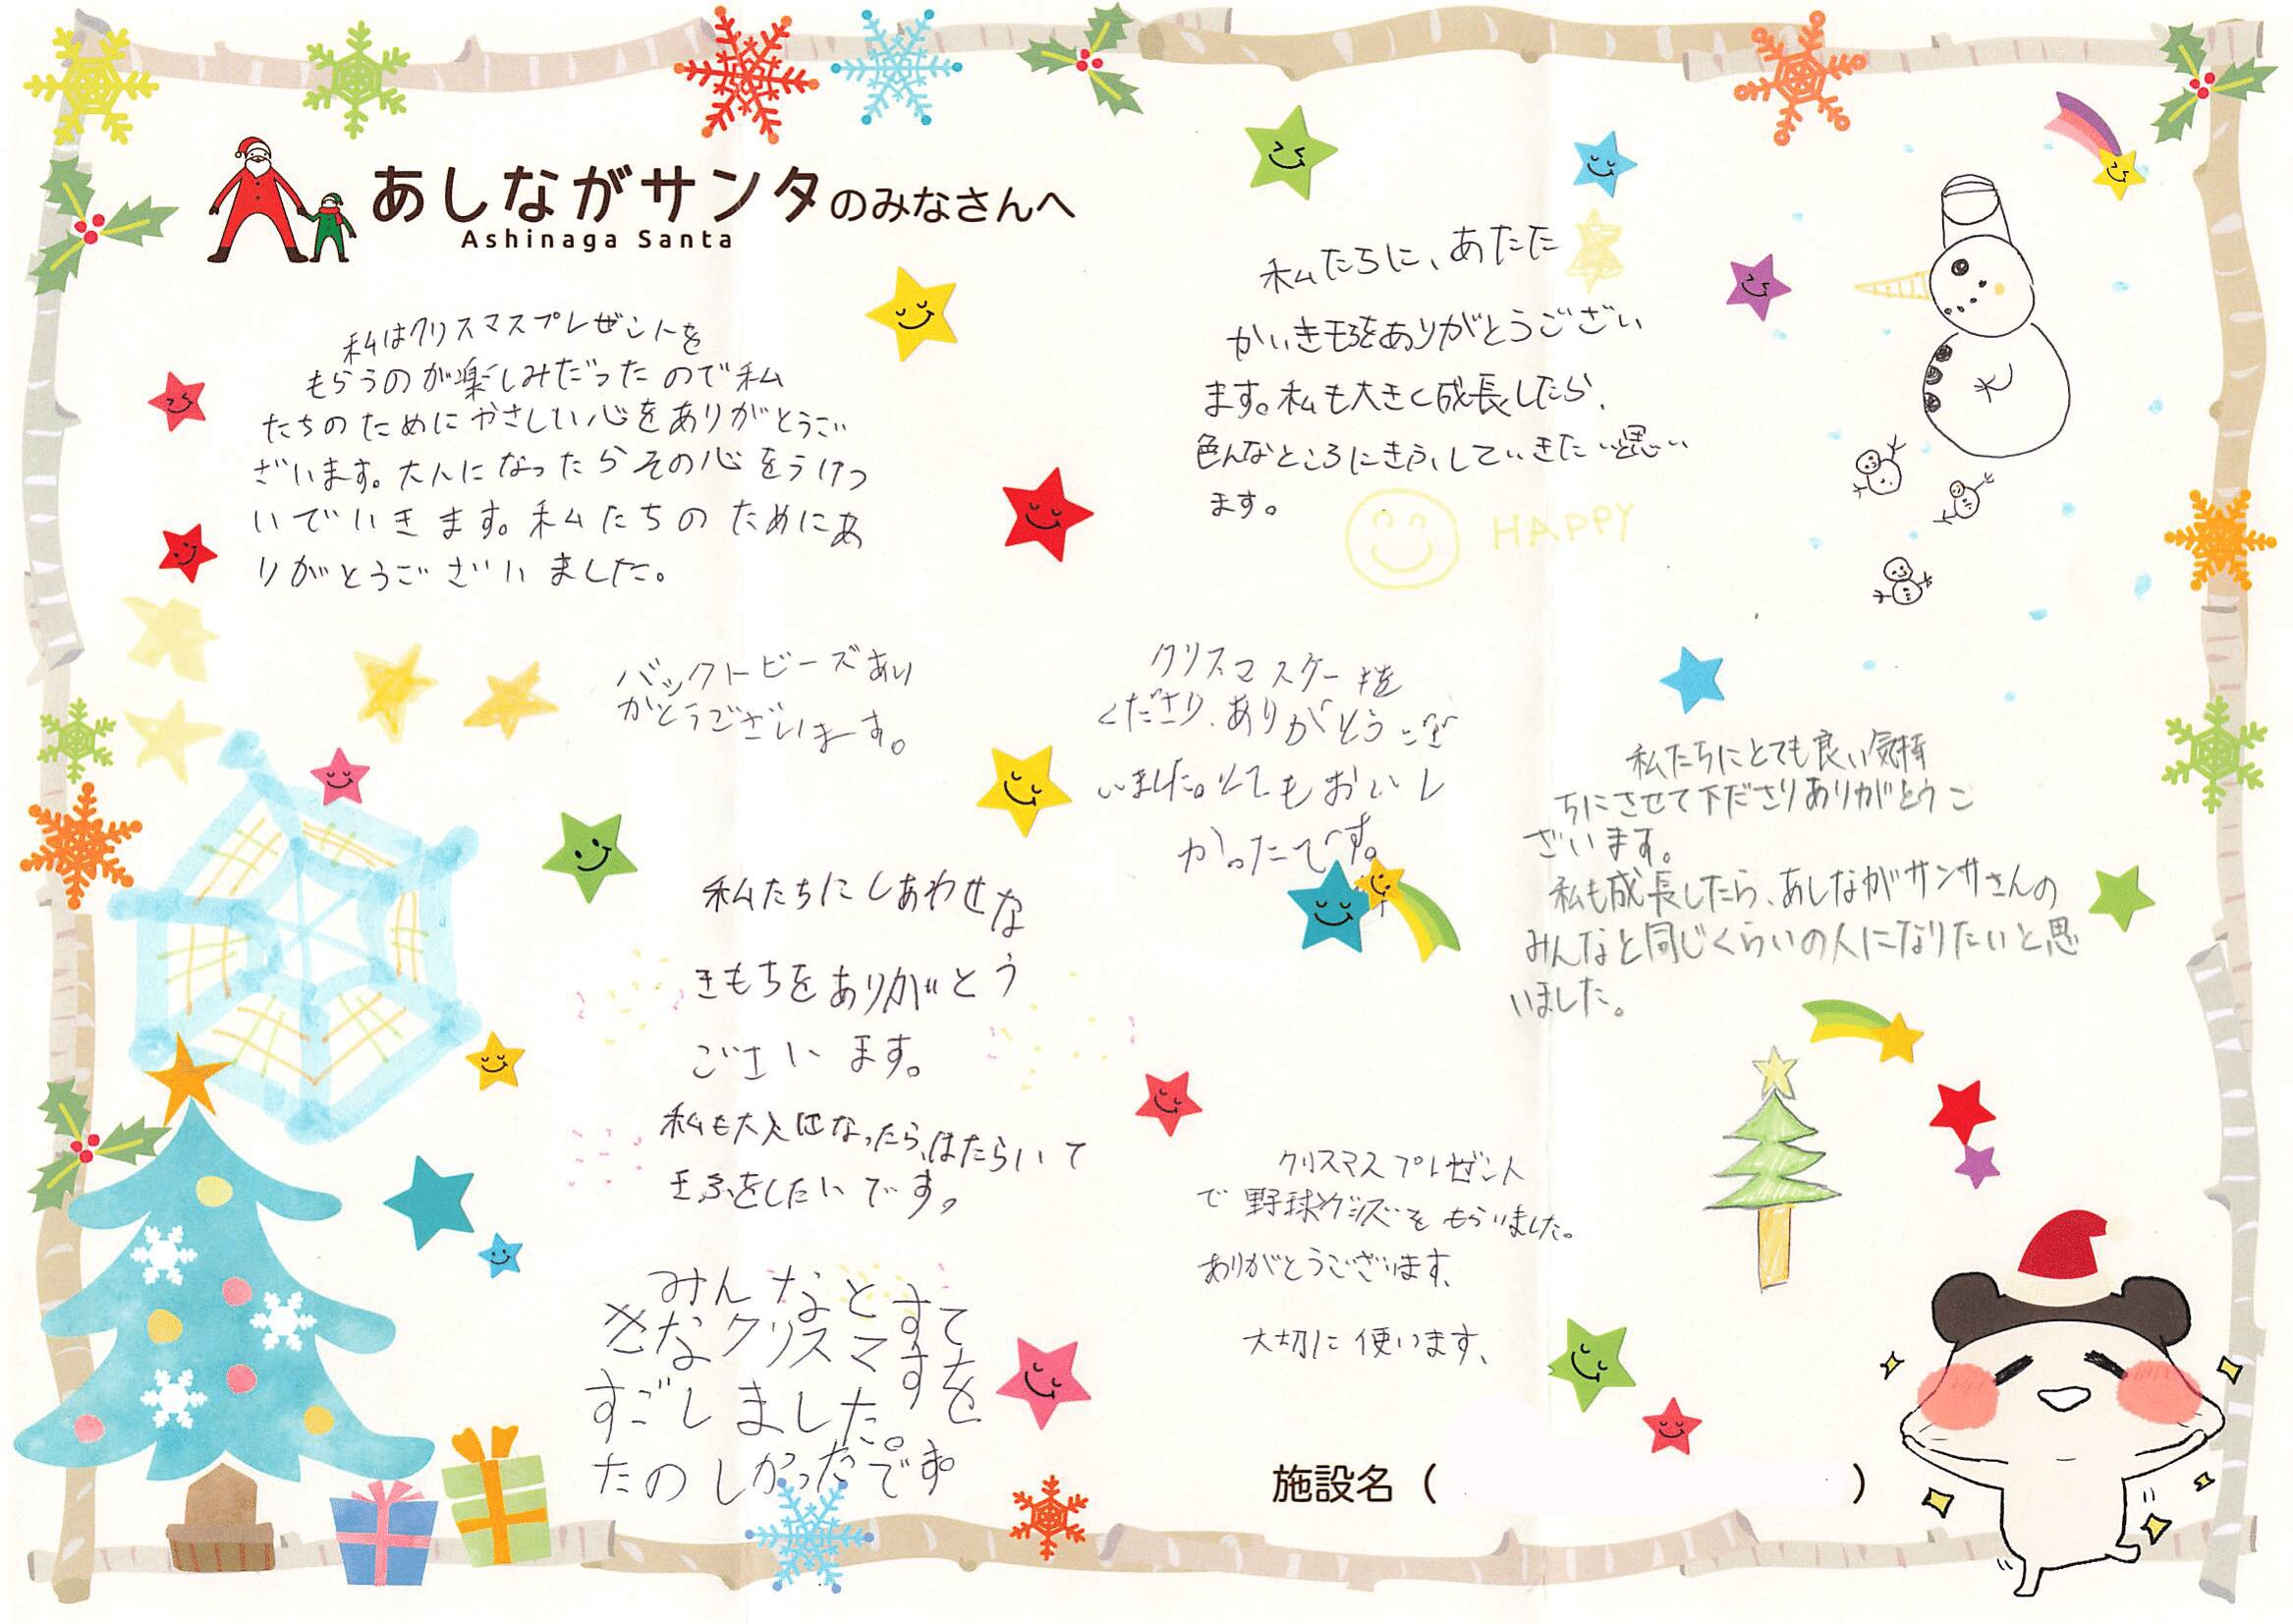 あしながサンタのみなさんへ
Ashinaga Santa
私はクリスマスプレゼントを
もらうのが楽しみだったので私
たちのためにやさしい心をありがとうご
ざいます。大人になったらその心をうけつ
いでいきます。私たちのためにあ
りがとうございました。
私たちに、あたた
かいきもちをありがとうござい
ます。私も大きく成長したら、
色んなところにきふしていきたい思い
ます。
HAPPY
バックトビーズあり
がとうございます。
クリスマスケーキを
くださり、ありがとうござ
いました。とてもおいし
かったです。
私たちにとても良い気持
ちにさせて下ださりありがとうご
ざいます。
私も成長したら、あしながサンサさんの
みんなと同じくらいの人になりたいと思
いました。
私たちにしあわせな
きもちをありがとう
ごさいます。
私も大人になったら、はたらいて
きふをしたいです。
クリスマスプレゼント
で野球グッズをもらいました。
ありがとうございます、
大切に使います、
みんなとすて
きなクリスマスを
すごしました。
たのしかったです。
施設名（ ）